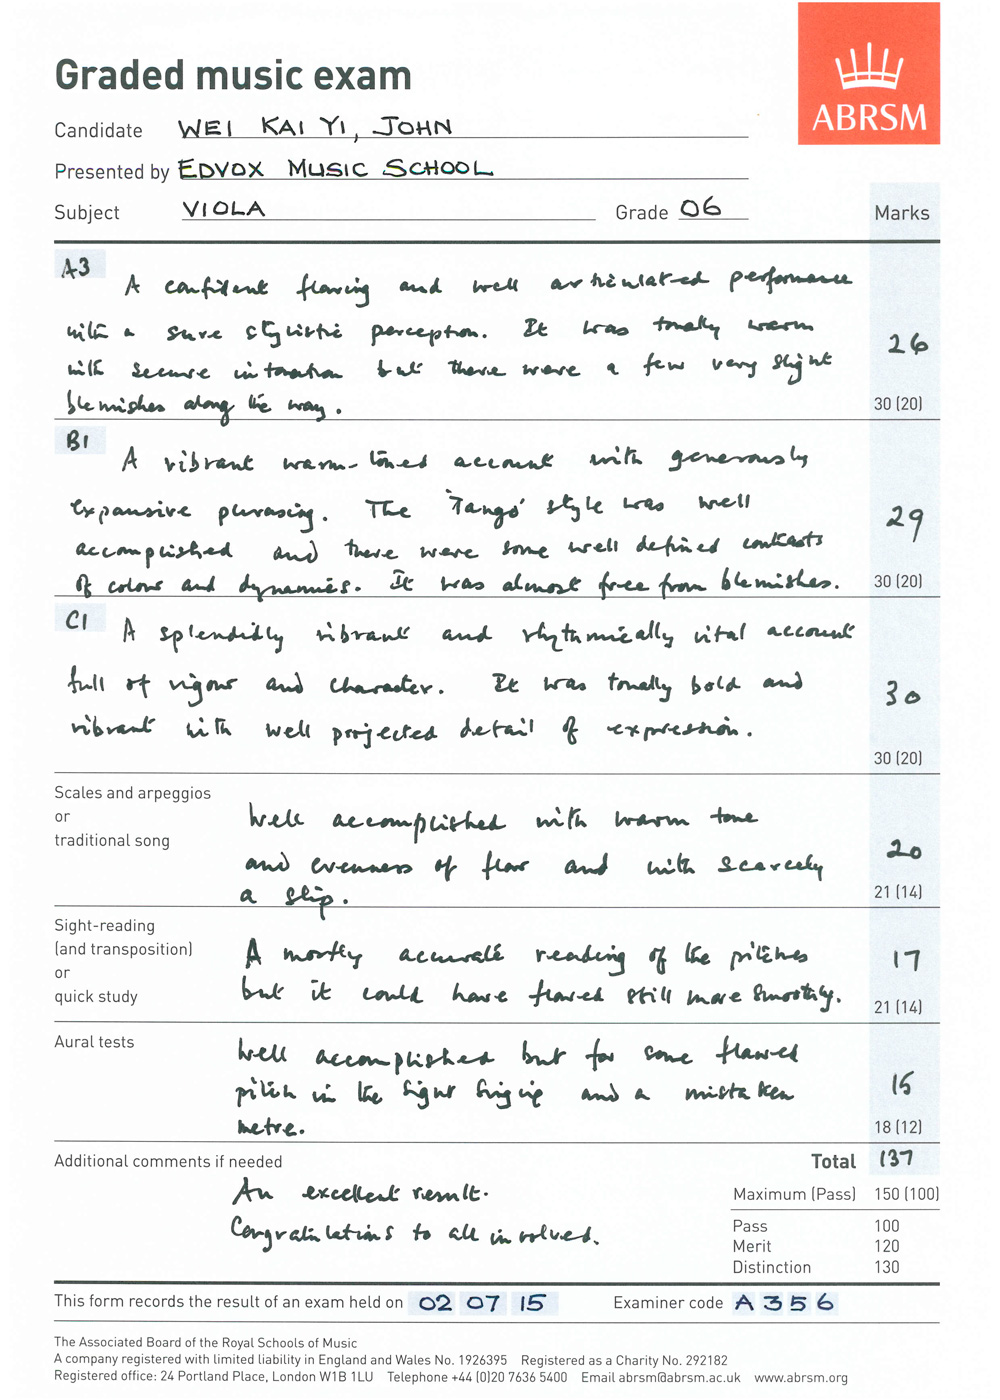 Graded music exam
ABRSM
Candidate WEI KAI YI, JOHN
Presented by EDVOX MUSIC SCHOOL
Subject VIOLA Grade 06 Marks
A3
A confident flowing and well articulated performance
with a sure stylistic perception. It was tonally warm
with secure intonation but there were a few very slight
blemishes along the way.
26
30 (20)
B1
A vibrant warm-toned account with generously
expansive phrasing. The 'Tango' style was well
accomplished and there were some well defined contrasts
of colour and dynamics. It was almost free from blemishes.
29
30 (20)
C1
A splendidly vibrant and rhythmically vital account
full of vigour and character. It was tonally bold and
vibrant with well projected detail of expression.
30
30 (20)
Scales and arpeggios
or
traditional song
Well accomplished with warm tone
and evenness of flow and with scarcely
a slip.
20
21 (14)
Sight-reading
(and transposition)
or
quick study
A mostly accurate reading of the pitches
but it could have flowed still more smoothly.
17
21 (14)
Aural tests
Well accomplished but for some flawed
pitch in the sight singing and a mistaken
metre.
15
18 (12)
Additional comments if needed
An excellent result.
Congratulations to all involved.
Total 137
Maximum (Pass) 150 (100)
Pass 100
Merit 120
Distinction 130
This form records the result of an exam held on 02 07 15 Examiner code A 3 5 6
The Associated Board of the Royal Schools of Music
A company registered with limited liability in England and Wales No. 1926395 Registered as a Charity No. 292182
Registered office: 24 Portland Place, London W1B 1LU Telephone +44 (0)20 7636 5400 Email abrsm@abrsm.ac.uk www.abrsm.org